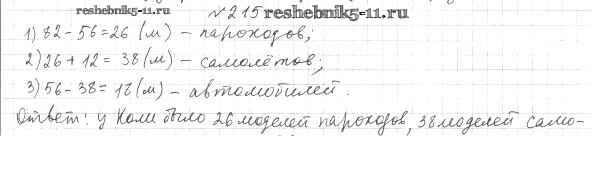 reshebnik5-11.ru
№215 reshebnik5-11.ru
1) 82 - 56 = 26 (м) - пароходов;
2) 26 + 12 = 38 (м) - самолётов;
3) 56 - 38 = 18 (м) - автомобилей.
Ответ: у Коли было 26 моделей пароходов, 38 моделей само-